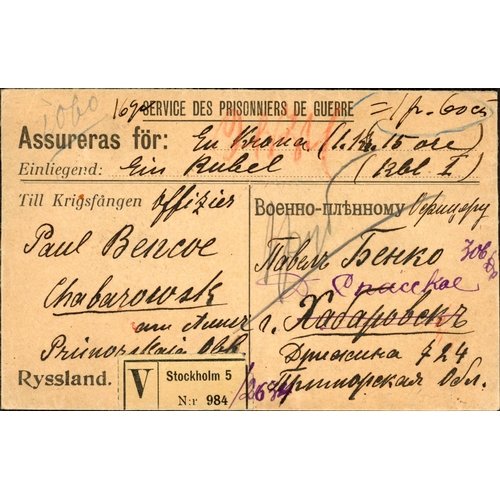 1060
SERVICE DES PRISONNIERS DE GUERRE
= 1 р. 60 
Assureras för: En Krona (1. Kr. 15 öre)
Einliegend: Ein Rubel (Rbl. I)
Till Krigsfången Offizier
Paul Bencoe
Chabarowsk
am Amur
Primorskaia Obl.
Ryssland.
V Stockholm 5
N:r 984
Военно-плѣнному Офицеру
Павелъ Бенко
Спасское
г. Хабаровскъ
Дружина 724
Приморская Обл.
/2634